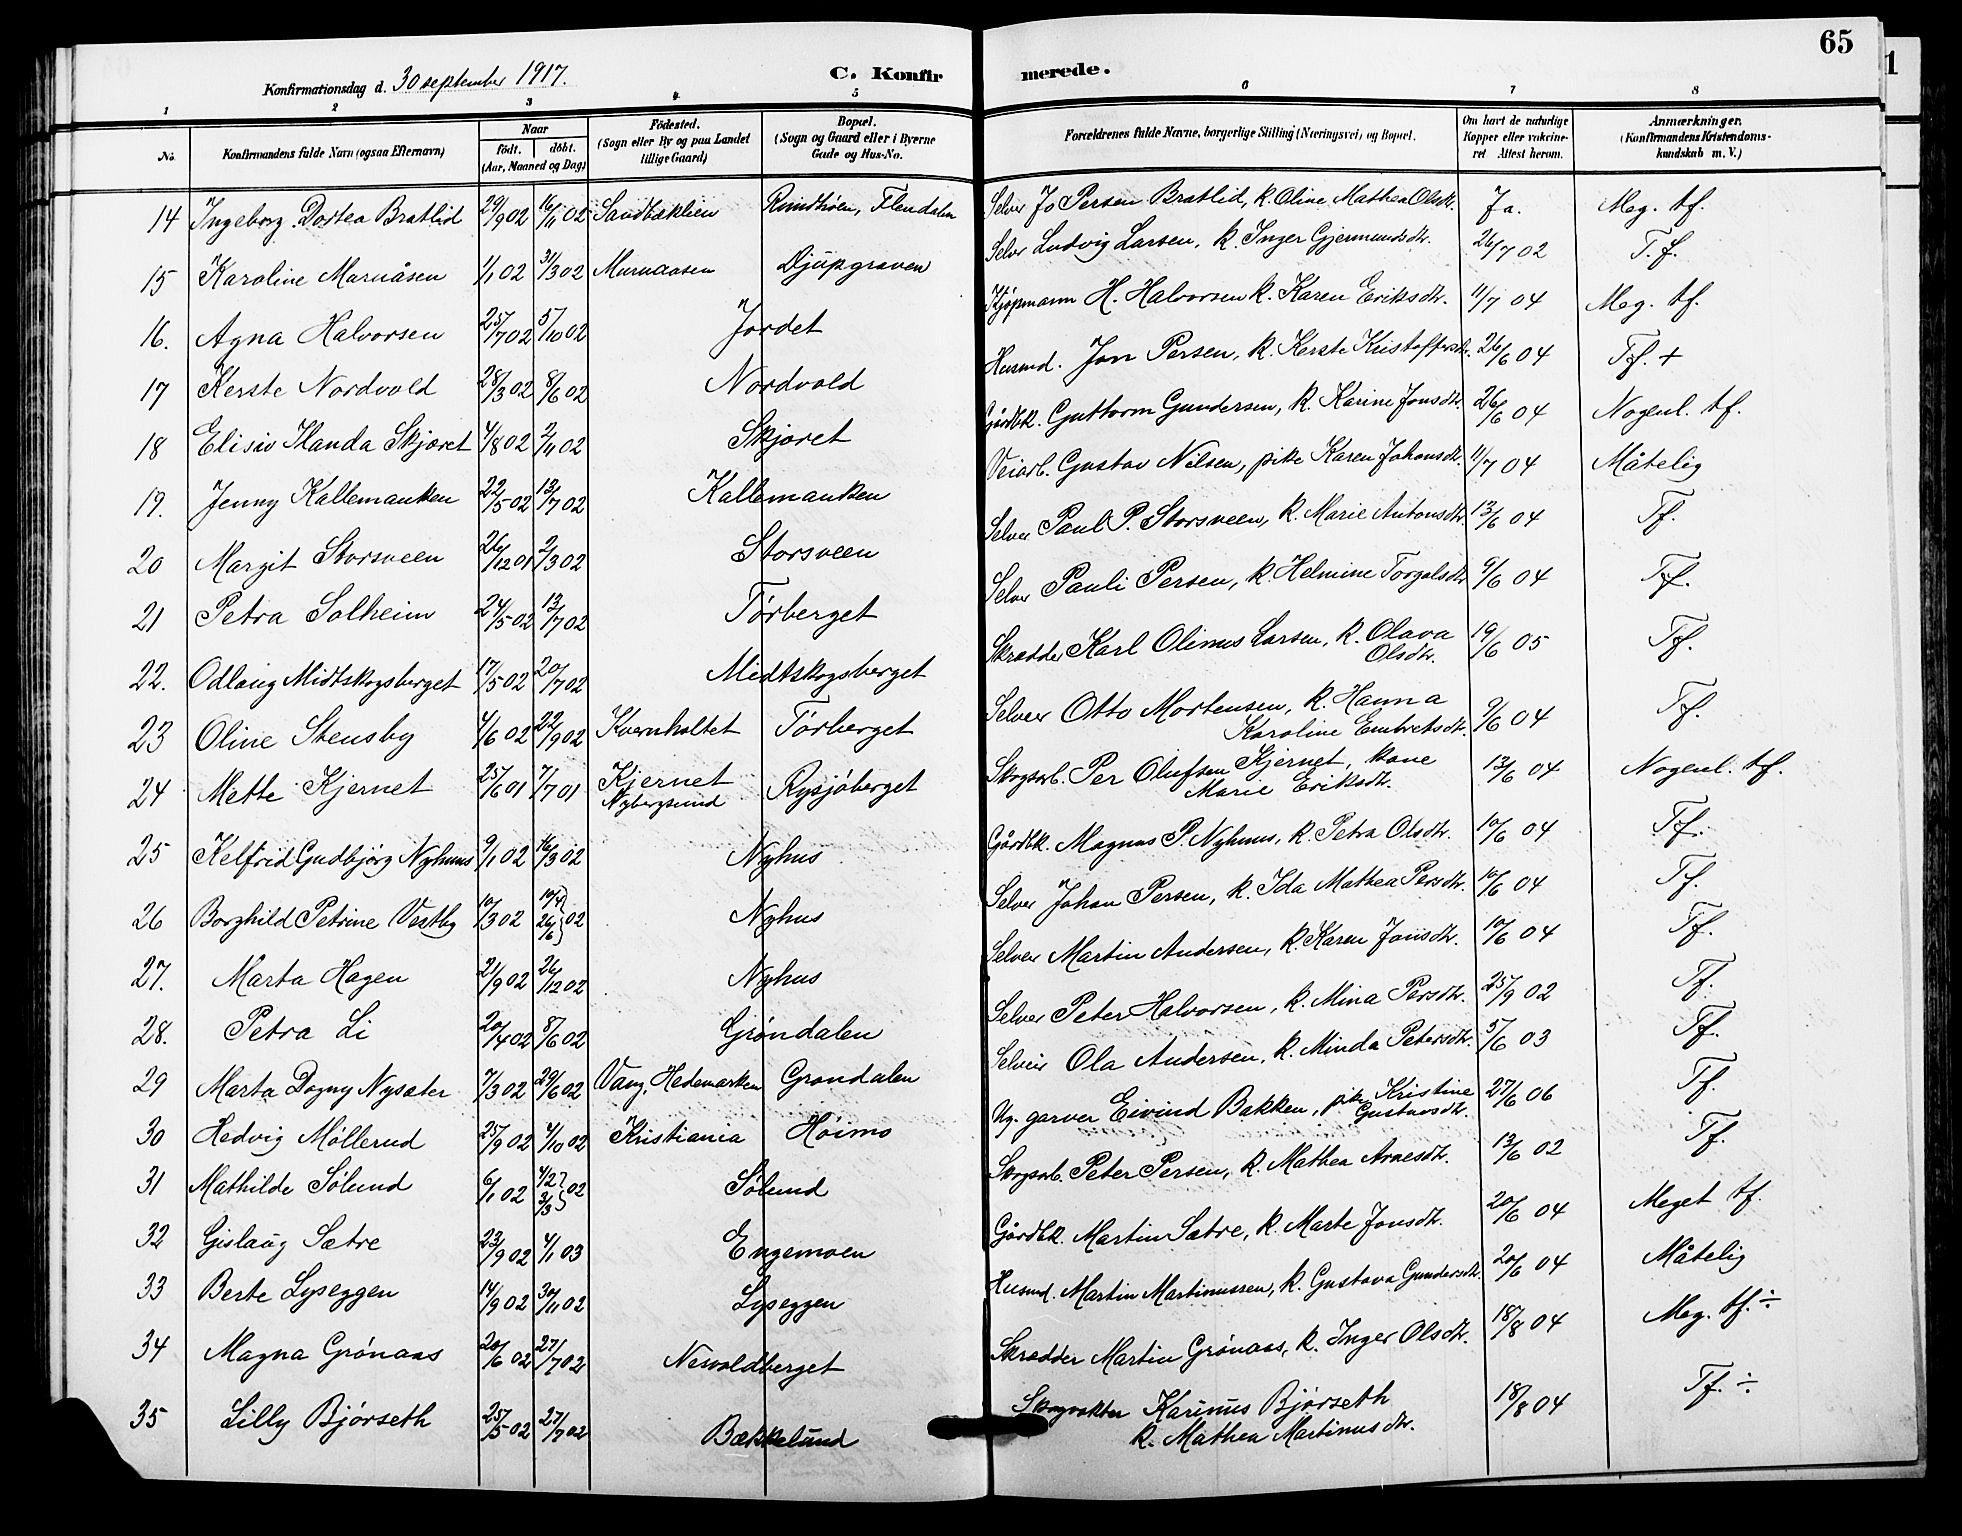 65
Konfirmationsdag d. 30 september 1917.
C. Konfirmerede.
1 2 3 4 5 6 7 8
No. | Konfirmandens fulde Navn (ogsaa Efternavn) | Naar födt. döbt. (Aar, Maaned og Dag) | Födested. (Sogn eller By og paa Landet tillige Gaard) | Bopæl. (Sogn og Gaard eller i Byerne Gade og Hus-No. | Forældrenes fulde Navne, borgerlige Stilling (Næringsvei) og Bopæl. | Om havt de naturlige Kopper eller vaccineret Attest herom. | Anmærkninger. (Konfirmandens Kristendomskundskab m. V.)
14 Ingeborg Dortea Bratlid 29/9 02 16/11 02 Sandbæklien Flendalen Selver Jo Persen Bratlid, k. Oline Mathea Olsdt. Ja. Meg. tf.
15 Karoline Marnåsen 1/1 02 31/3 02 Djupgraven Selver Ludvig Larsen, k. Inger Gjermundsdtr. 26/7 02 T. f.
16. Agna Halvorsen 25/7 02 5/10 02 Jordet Kjøpmann H. Halvorsen k. Karen Eriksdtr. 11/7 04 Meg. tf.
17 Kerste Nordvold 28/3 02 8/6 02 Nordvold Husmd. Jon Persen, k. Kerste Kristoffersdtr. 26/6 04 Tf. +
18 Elisiv Skjæret 4/8 02 2/11 02 Skjæret Gårdbk. Guttorm Gundersen, k. Karine Jonsdtr. 26/6 04 Nogenl. tf.
19. Jenny Kallemanken 22/5 02 13/7 02 Kallemanken Veiarb. Gustav Nilsen, pike Karen Johansdtr. 11/7 04 Måtelig
20 Margit Storsveen 26/12 01 2/3 02 Storsveen Selver Paul P. Storsveen, k. Marie Antonsdtr. 13/6 04 Tf.
21 Petra Solheim 24/5 02 13/7 02 Tørberget Selver Pauli Persen, k. Helmine Torgalsdtr. 9/6 04 Tf.
22. Odlaug Midtskogsberget 17/5 02 20/7 02 Midtskogsberget Skrædder Karl Olimus Larsen, k. Olava Olsdtr. 19/6 05 Tf.
23 Oline Stensby 4/6 02 22/9 02 Kvernholtet Tørberget Selver Otto Mortensen, k. Hanna Karoline Embretsdtr. 9/6 04 Tf.
24 Mette Kjernet 25/6 01 7/7 01 Kjernet Nybergsund Rysjøberget Skogsarb. Per Olufsen Kjernet, kone Marie Eriksdtr. 13/6 04 Nogenl. tf.
25 Kelfrid Gudbjørg Nyhuus 9/1 02 16/3 02 Nyhus Gårdbk. Magnus P. Nyhuus, k. Petra Olsdtr. 10/6 04 Tf.
26 Borghild Petrine Vestby 10/3 02 26/6 02 Nyhus Selver Johan Persen, k. Ida Mathea Persdtr. 10/6 04 Tf.
27. Marta Hagen 21/9 02 26/12 02 Nyhus Selver Martin Andersen, k. Karen Jonsdtr. 10/6 04 Tf.
28. Petra Li 20/4 02 8/6 02 Grøndalen Selver Peter Halvorsen, k. Mina Persdtr. 25/9 02 Tf.
29 Marta Dagny Nysæter 7/3 02 29/6 02 Vang, Hedemarken Grøndalen Selveier Ola Andersen, k. Minda Petersdtr. 5/6 03 Tf.
30 Hedvig Møllerud 25/9 02 4/10 02 Kristiania Høimo Ug. garver Eivind Bakken, pike Kristine Gustavsdtr. 27/6 06 Tf.
31 Mathilde Sølund 6/1 02 4/2 3/3 } 02 Sølund Skogsarb. Peter Persen, k. Mathea Arnesdtr. 13/6 02 Tf.
32 Gislaug Sætre 23/9 02 4/1 03 Engemoen Gårdbk. Martin Sætre, k. Marte Jonsdtr. 20/6 04 Meget tf.
33 Berte Lyseggen 14/9 02 30/11 02 Lyseggen Husmd. Martin Martinussen, k. Gustava Gundersdtr. 20/6 04 Måtelig
34 Magna Grønaas 20/6 02 27/7 02 Nesvoldberget Skrædder Martin Grønaas, k. Inger Olsdtr. 18/8 04 Meg. tf. ÷
35 Lilly Bjørseth 25/5 02 27/7 02 Bækkelund Skogvokter Karinus Bjørseth k. Mathea Martinusdtr. 18/8 04 Tf. ÷